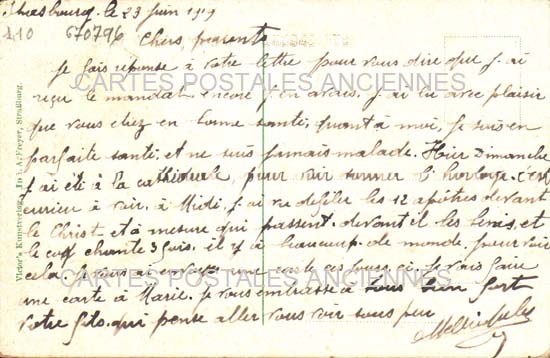 Strasbourg. le 23 juin 1919
A10 670796 Chers parents
Je fais reponse à votre lettre pour vous dire que j. ai
reçu le mandat encore j'en avais. j. ai lu avec plaisir
que vous etiez en bonne santé, quant à moi, je suis en
parfaite santé, et ne suis jamais malade. Hier Dimanche
j. ai été à la cathédrale pour voir sonner l'horloge. c'est
curieux à voir. à Midi. j. ai vu defiler les 12 apôtres devant
le Christ et à mesure qui passent devant il les benis, et
le coq chante 3 fois. il y à beaucoup de monde. pour voir
cela. Je vous envoyé une carte Je vais faire
une carte à Marie. Je vous embrasse à tous bien fort
votre fils. qui pense aller vous voir sous peu
CARTES POSTALES ANCIENNES
CARTES POSTALES ANCIENNES
Victor's Kunstverlag, Inh. A. Freyer, Straßburg.